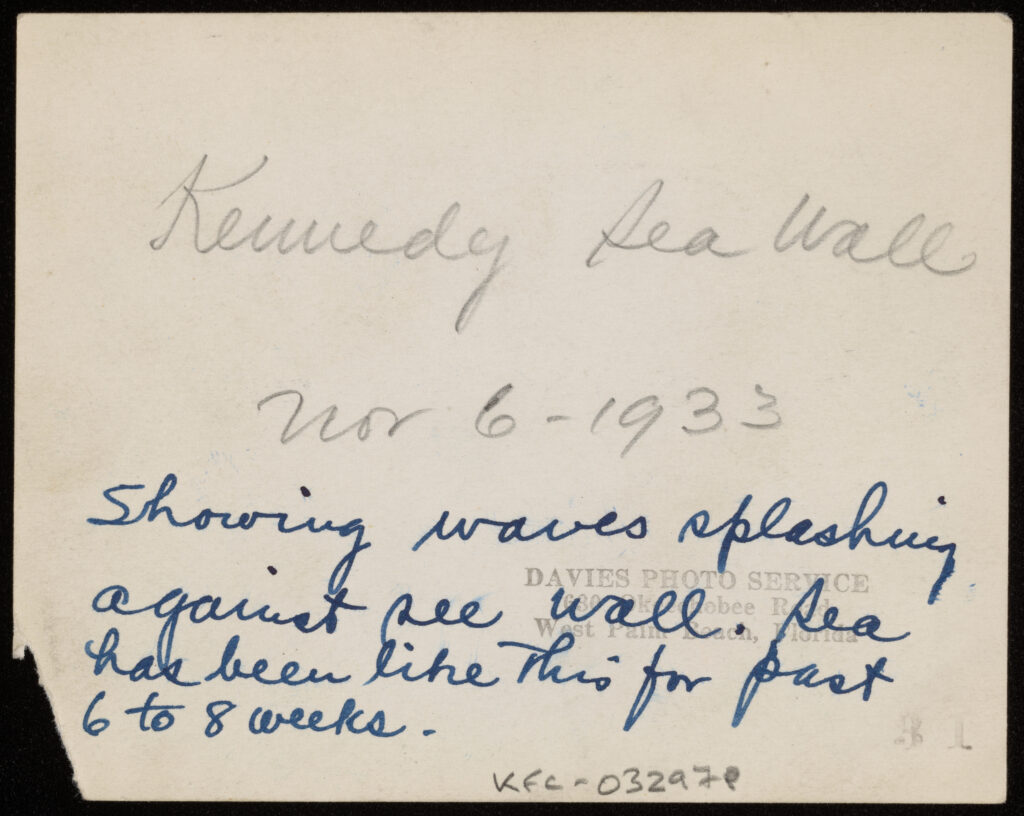 Kennedy Sea Wall
Nov 6 - 1933
Showing waves splashing
DAVIES PHOTO SERVICE
against see wall. Sea
630 Okeechobee Road
West Palm Beach, Florida
has been like this for past
6 to 8 weeks.
KFC-03297P